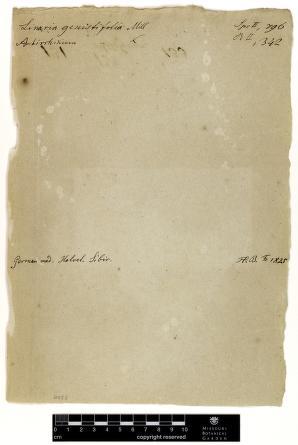 Linaria genistifolia Mill
Antirrhinum
Spr II, 796
R. II, 342
German. mid. Helvet. Sibir.
H. B. 1825
0 1 2 3 4 5 6 7 8 9 10
cm
copyright reserved
MISSOURI
BOTANICAL
GARDEN